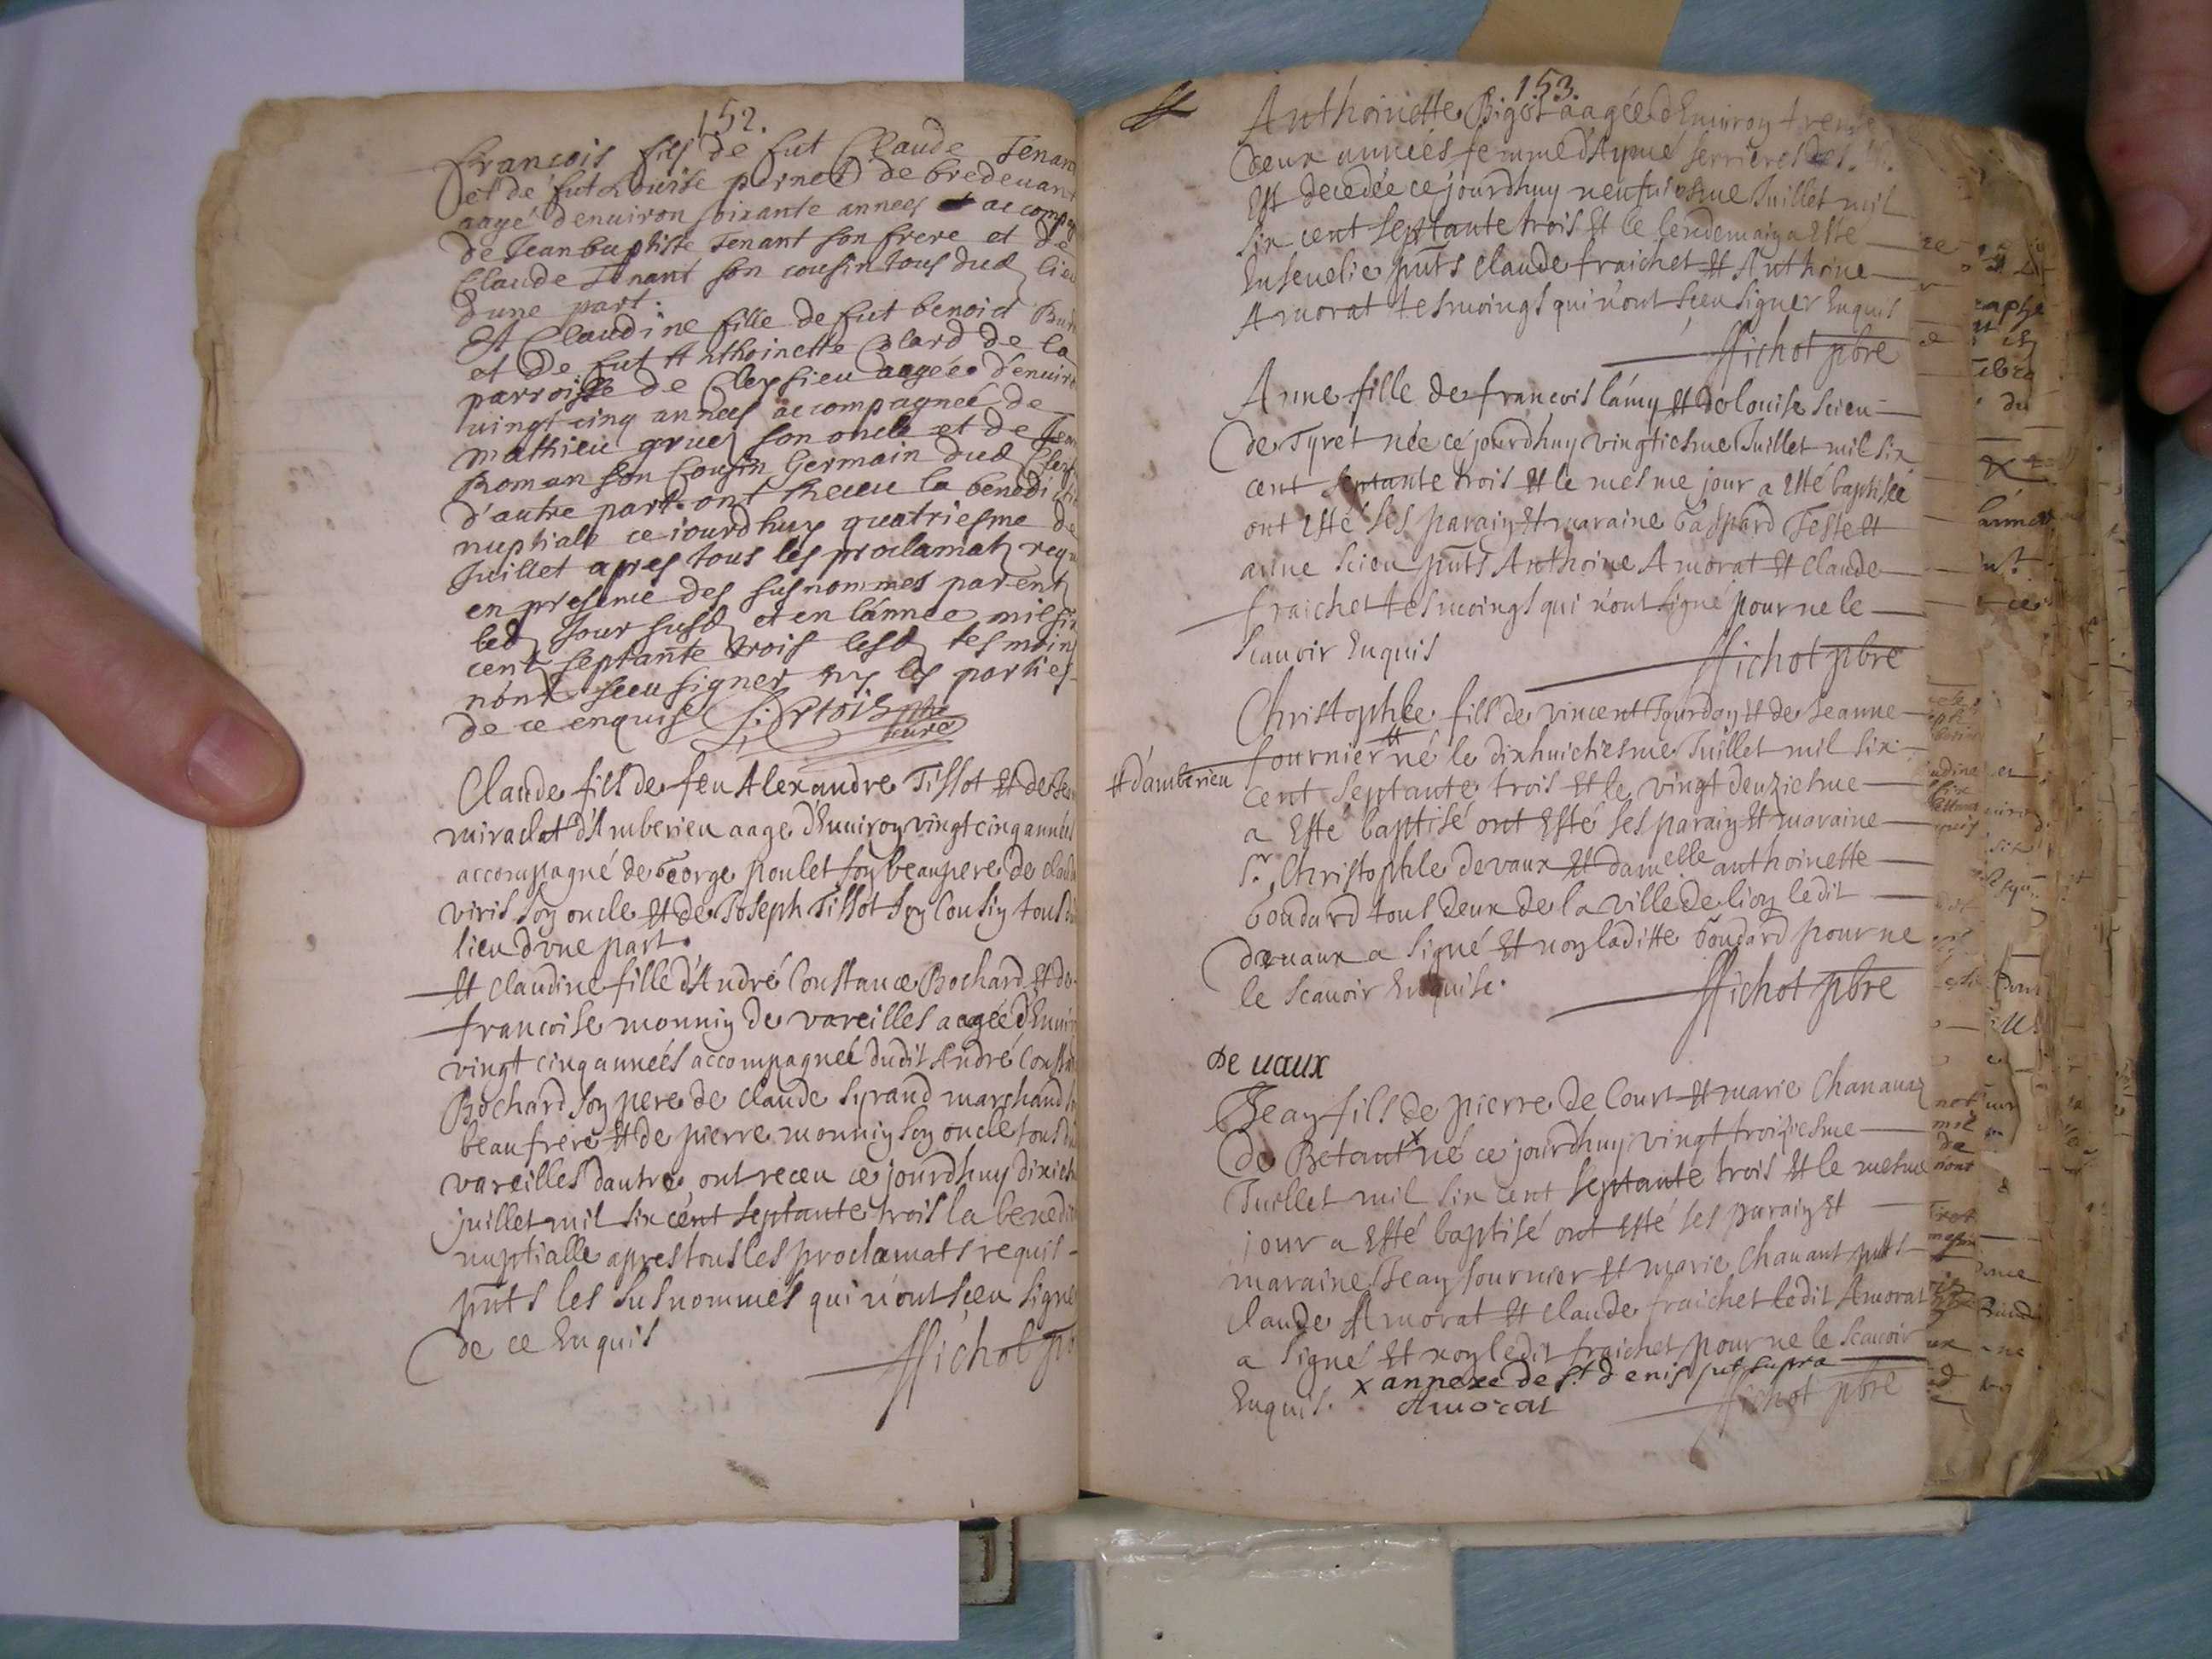 152.
francois fils de fut Claude Tenan
et de fut Louise pernet de bredevant
aagé denuiron soixante annees accompag
de Jean baptiste Tenant son frere et de
Claude Tenant son cousin tous dud lieu
dune part.
Et Claudine fille de fut benoid
et de fut Anthoinette Colard de la
parroisse de Cleysieu aagée d'enuiro
vingt cinq annees accompagneé de
mathieu gruez son oncle et de Jean
Roman son Cousin Germain dud
d'autre part. ont Receu la benedi
nuptiale ce jourdhuy quatriesme de
Juillet apres tous les proclamatz requ
en presence des susnommes parentz
led Jour susd et en lánnée mil six
cent septante trois lesd tesmoin
nónt sceu signer ny les parties
de ce enquise pbre
curé
Claude fils de feu Alexandre Tissot et de
miraclot d'Amberieu aage d'Enuiron vingt cinq années
accompagné de George poulet son beaupere de
viris son oncle et de Joseph Tissot son Cousin tous du
lieu d'vne part.
Et Claudine fille d'André Constance Bochard et de
francoise monnin de vareilles aagée d'Enuir
vingt cinq anneés accompagneé dudit André Consta
Bochard son pere de claude Syrand marchand
beaufrere et de pierre monnin son oncle tous du
vareilles dautre, ont receu ce jourdhuy dixiesm
juillet mil six cent septante trois la benedic
nuptialle apres tous les proclamats requis
pnts les susnommés qui n'ont sceu signe
de ce Enquis
Michot pb
153.
Anthoinette Bigot aagée d'Enuiron trente
deux anneés femme d'Aymé serrieres
Est decedée ce jourdhuy neufuiesme Juillet mil
six cent septante trois Et le lendemain a Esté
Enseuelie pnts claude fraichet Et Anthoine
Amorat tesmoings qui n'ont sceu signer Enquis
Michot pbre
Anne fille de francois lámy et de louise scieu
de Tyret née ce jourdhuy vingtiesme Juillet mil six
cent septante trois Et le mesme jour a Esté baptiseé
ont Esté ses parain Et maraine Gaspard Teste et
anne scieu pnts Anthoine Amorat Et claude
fraichet tesmoings qui n'ont signé pour ne le
scauoir Enquis
Michot pbre
Christophle fils de vincent Jourdan Et de Jeanne
fournier né le dixhuictiesme Juillet mil six
et d'amberieu
cent septante trois Et le vingt deuziesme
a Esté baptisé ont Esté ses parain Et maraine
Sr. Christophle devaux Et damelle anthoinette
boudard tous deux de la ville de lion ledit
devaux a signé Et non laditte boudard pour ne
le scauoir Enquise.
Michot pbre
De uaux
Jean fils de pierre de Court Et marie Chanauaz
de Betant x né ce jourdhuy vingt troiziesme
Juillet mil six cent septante trois Et le mesme
jour a Esté baptisé ont Esté ses parain Et
maraine Jean fournier Et marie Chanant pnts
claude Amorat Et claude fraichet ledit Amorat
a signé Et non ledit fraichet pour ne le scauoir
Enquis. x annexe de St. denis sut supra
Amorat
Michot pbre